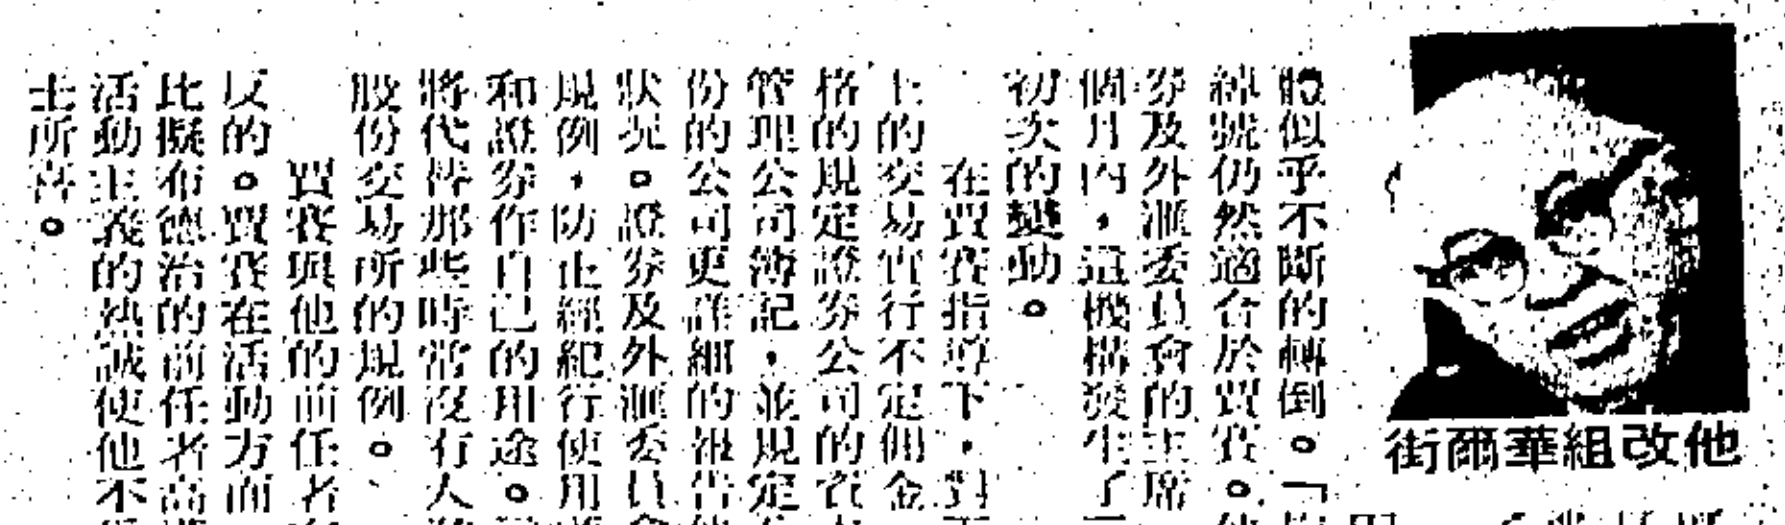 他改組華爾街
體似乎不斷的轉倒。「
綽號仍然適合於賈賽。
券及外滙委員會的主席
個月內，這機構發生了
初次的變動。
在賈賽指導下，對
上的交易實行不定佣金
格的規定證券公司的資
管理公司簿記，並規定
份的公司更詳細的報告
狀況。證券及外滙委員
規例，防止經紀行使用
和證券作自己的用途。
將代替那些時常沒有人
股份交易所的規例。
賈賽與他的前任者
反的。賈賽在活動方面
比擬布德治的前任者高
活動主義的熱誠使他不
士所喜。